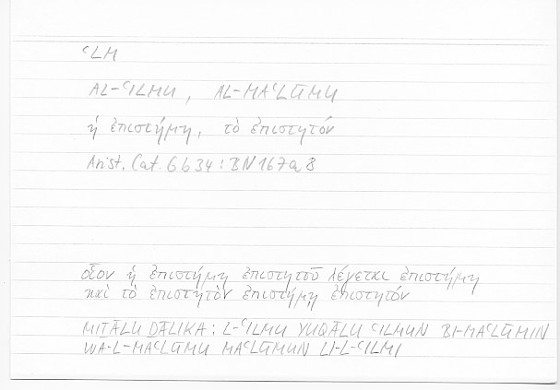 ʿLM
AL-ʿILMU, AL-MAʿLŪMU
ἡ ἐπιστήμη, τὸ ἐπιστητόν
Arist. Cat. 6b34 : BN 167a8
οἷον ἡ ἐπιστήμη ἐπιστητοῦ λέγεται ἐπιστήμη
καὶ τὸ ἐπιστητὸν ἐπιστήμῃ ἐπιστητόν
MIṮĀLU ḎĀLIKA : L-ʿILMU YUQĀLU ʿILMUN BI-MAʿLŪMIN
WA-L-MAʿLŪMU MAʿLŪMUN LI-L-ʿILMI